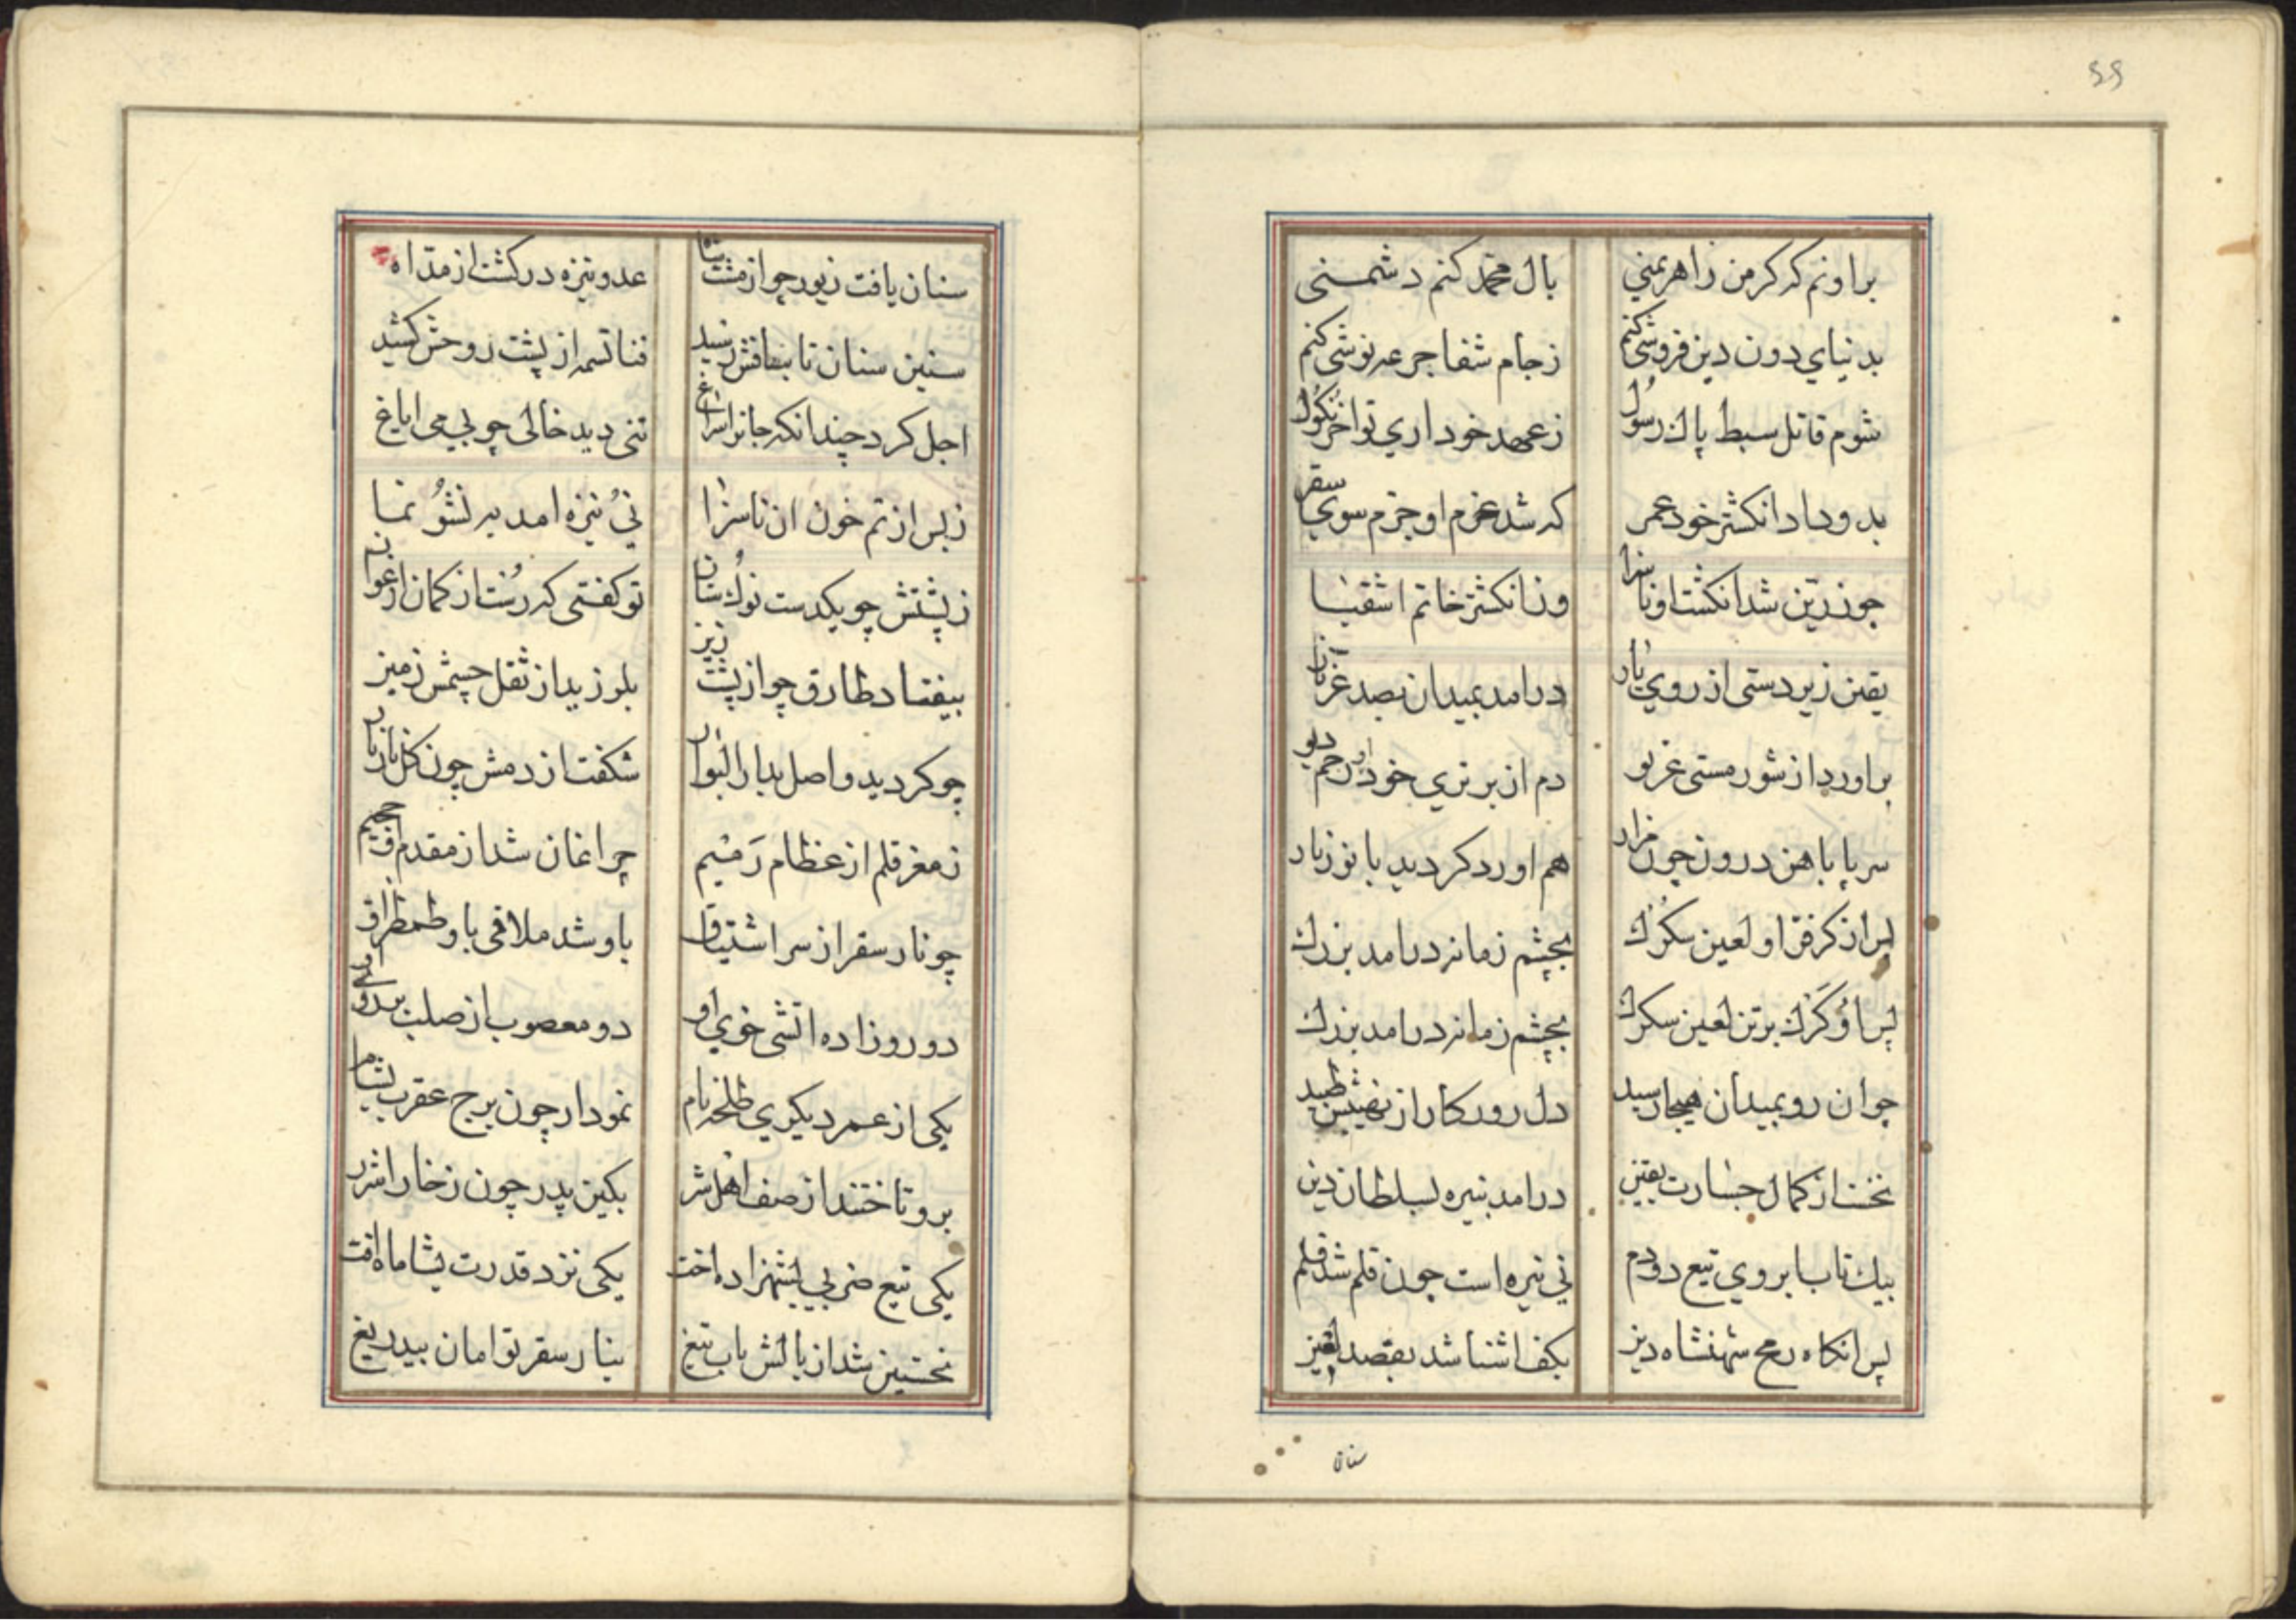 ۶۶
براونم که کر من ز اهریمنی بال محمد کنم دشمنی
بدنیای دون دین فروشی کنم ز جام شفا جرعه نوشی کنم
شوم قاتل سبط پاک رسول ز عهد خود اری تو اخر نکول
بدو داد انکشتر خود عمر که شد عزم او جزم سوی سقر
چو زرین شد انکشت او ناسزا وزانکشتر خاتم اشقیا
یقین زیر دستی از روی درامد بمیدان بصد
براورد از شور مستی غریو دم از برتری خود
سرپا باهن درون چون هم اورد کردید با
پس از کر فر او لعین سکرک بچشم زمانه درامد بزرک
پس او کرک برتن لعین سکرک بچشم زمانه درامد بزرک
چو ان رو بمیدان هیجا رسید دل روزکار از نهیبش طپید
نخست از کمال جسارت بقین درامد بنیره بسلطان دین
بیک تاب ابروی تیع دودم نی نیره است چون قلم شد قلم
پس انکاه رمح شهنشاه دین بکف اشنا شد بقصد لعین
سنان
سنان یافت زیور چو از مشت شاه عدو نیزه در کشت از مد اه
سنین سنان تا بنافش رسید فنا تسمه از پشت روحش کشید
اجل کرد چندانکه جانرا سراغ تنی دید خالی چو بی می ایاغ
ز بس از تم خون ان ناسزا نی نیزه امد به نشو نما
ز پشتش چو یکدست نوک سنان تو کفتی که رست از کمان ارغوان
بیفتاد طارق چو از پشت زین بلرزید از ثقل جسمش زمین
چو کردید واصل بدار البوار شکفت از دمش چون کل نار نار
ز مغز قلم از عظام رمیم چراغان شد از مقدم
چو نار سقر از سر اشتیاق باو شد ملاقی باو طمطراق
دو روز زاده اتشی خوی او دو معصوب از صلب
یکی از عمر دیکری طلحه نام نمودار چون برج عقرب بشام
برو تاختند از صف اهل شر بکین پدر چون ز خارا شرر
یکی تیع ضربی بشهزاده اخت یکی نزد قدرت بشاماه
نخستین شد از بالش باب تیغ بنار سقر توامان بیدریغ